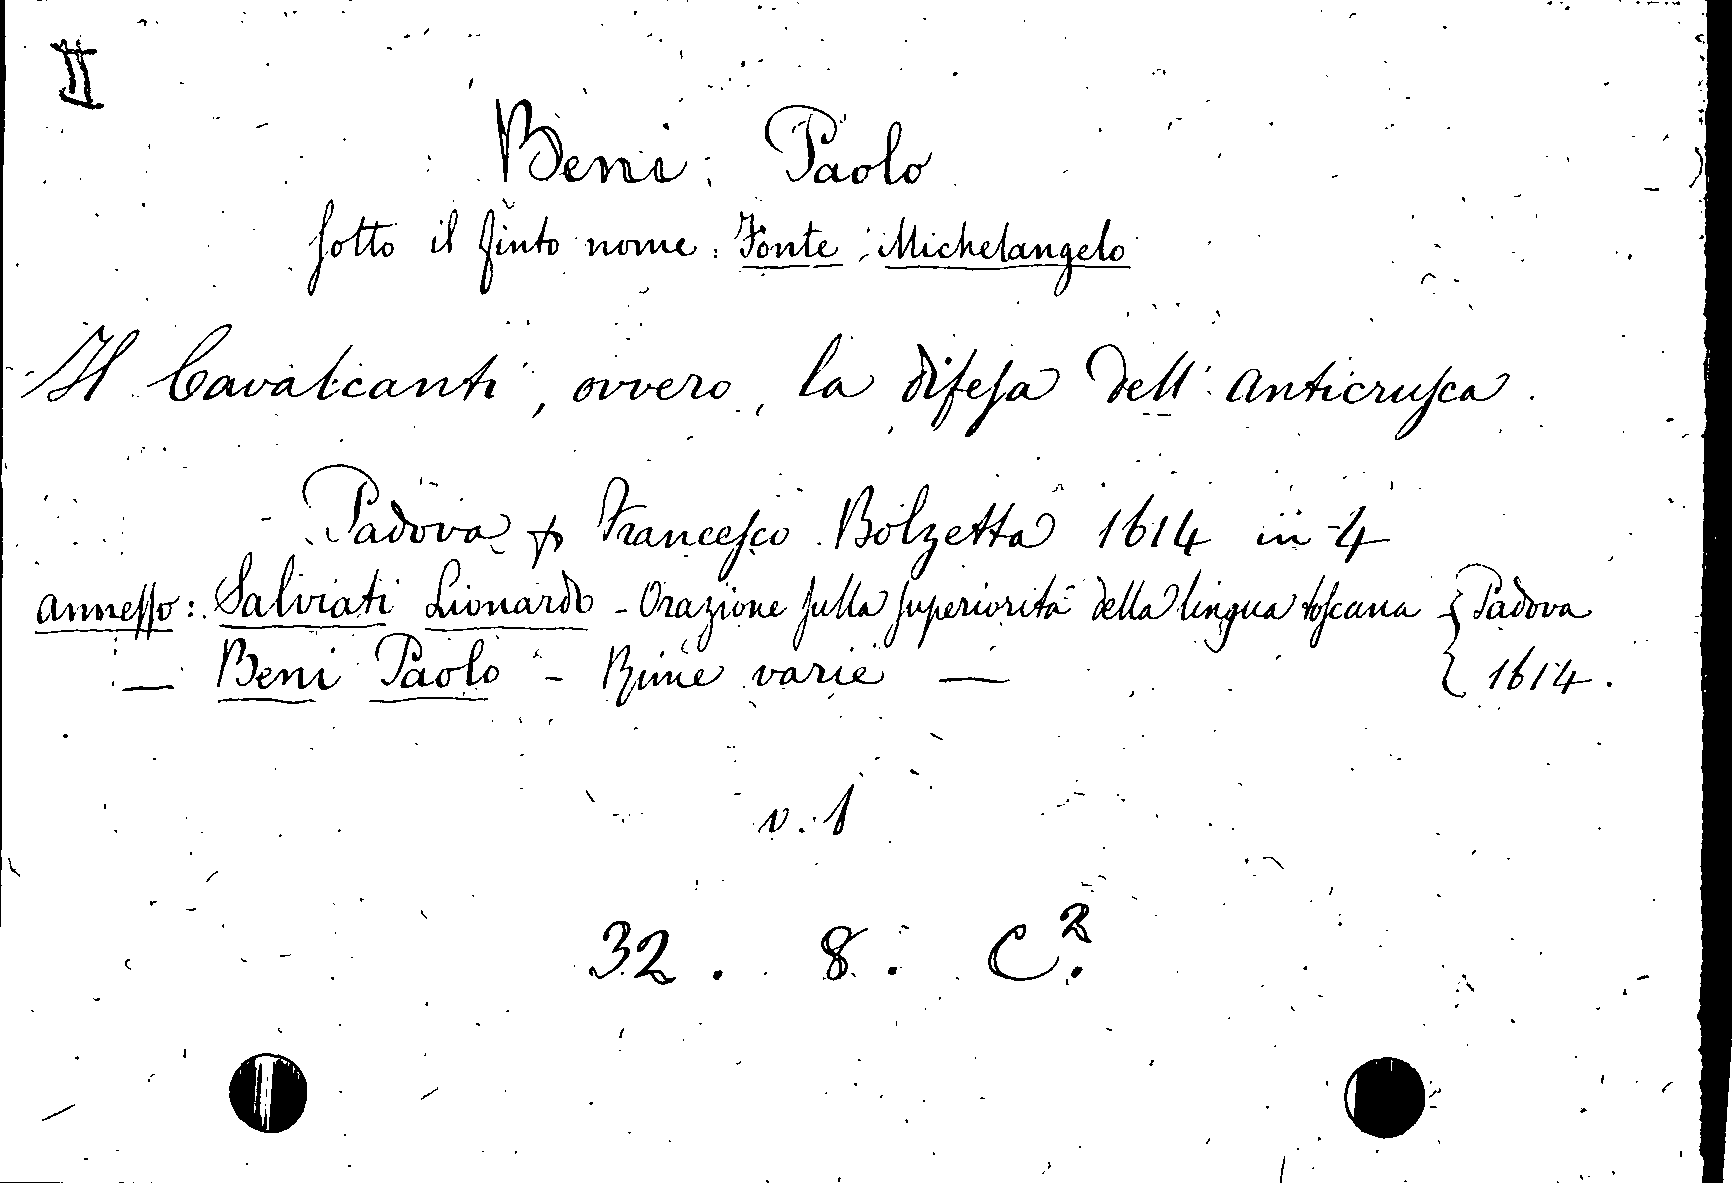 II
Beni: Paolo
sotto il finto nome: Fonte: Michelangelo
Il Cavalcanti, ovvero, la difesa dell'anticrusca.
Padova + Francesco Bolzetta 1614 in-4
annesso: Salviati Lionardo - Orazione sulla superiorità della lingua toscana } Padova
— Beni Paolo - Rime varie — } 1614.
v. 1
32. 8. C².